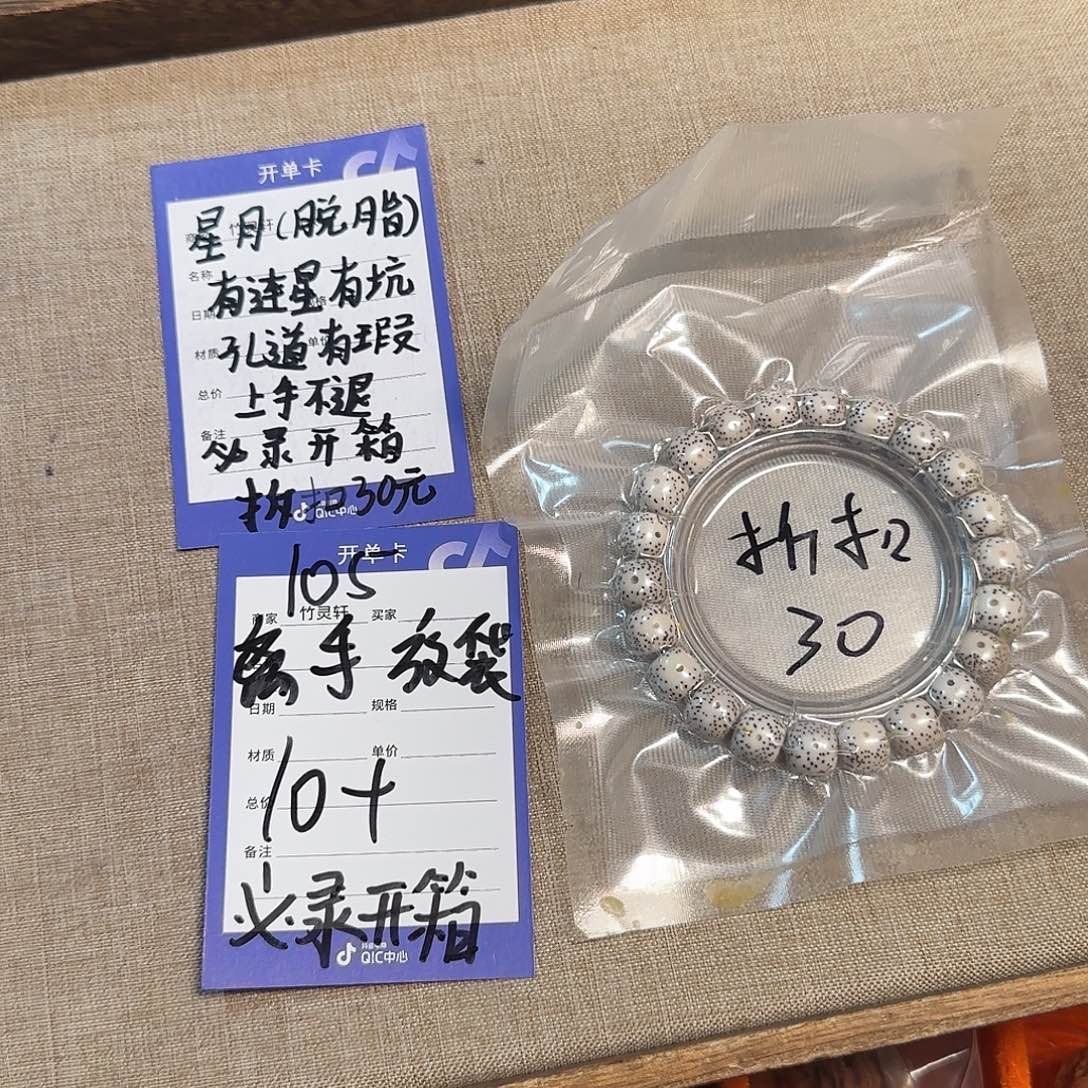 开单卡
星月(脱脂)
竹灵轩
名称
有连星有坑
日期
材质
单价
孔道有瑕
总价
上手不退
备注
必录开箱
折扣30元
QIC中心
开单卡
105
商家 竹灵轩 买家
手 放袋
日期 规格
材质 单价
总价
10+
备注
必录开箱
抖音电商
QIC中心
折扣
30